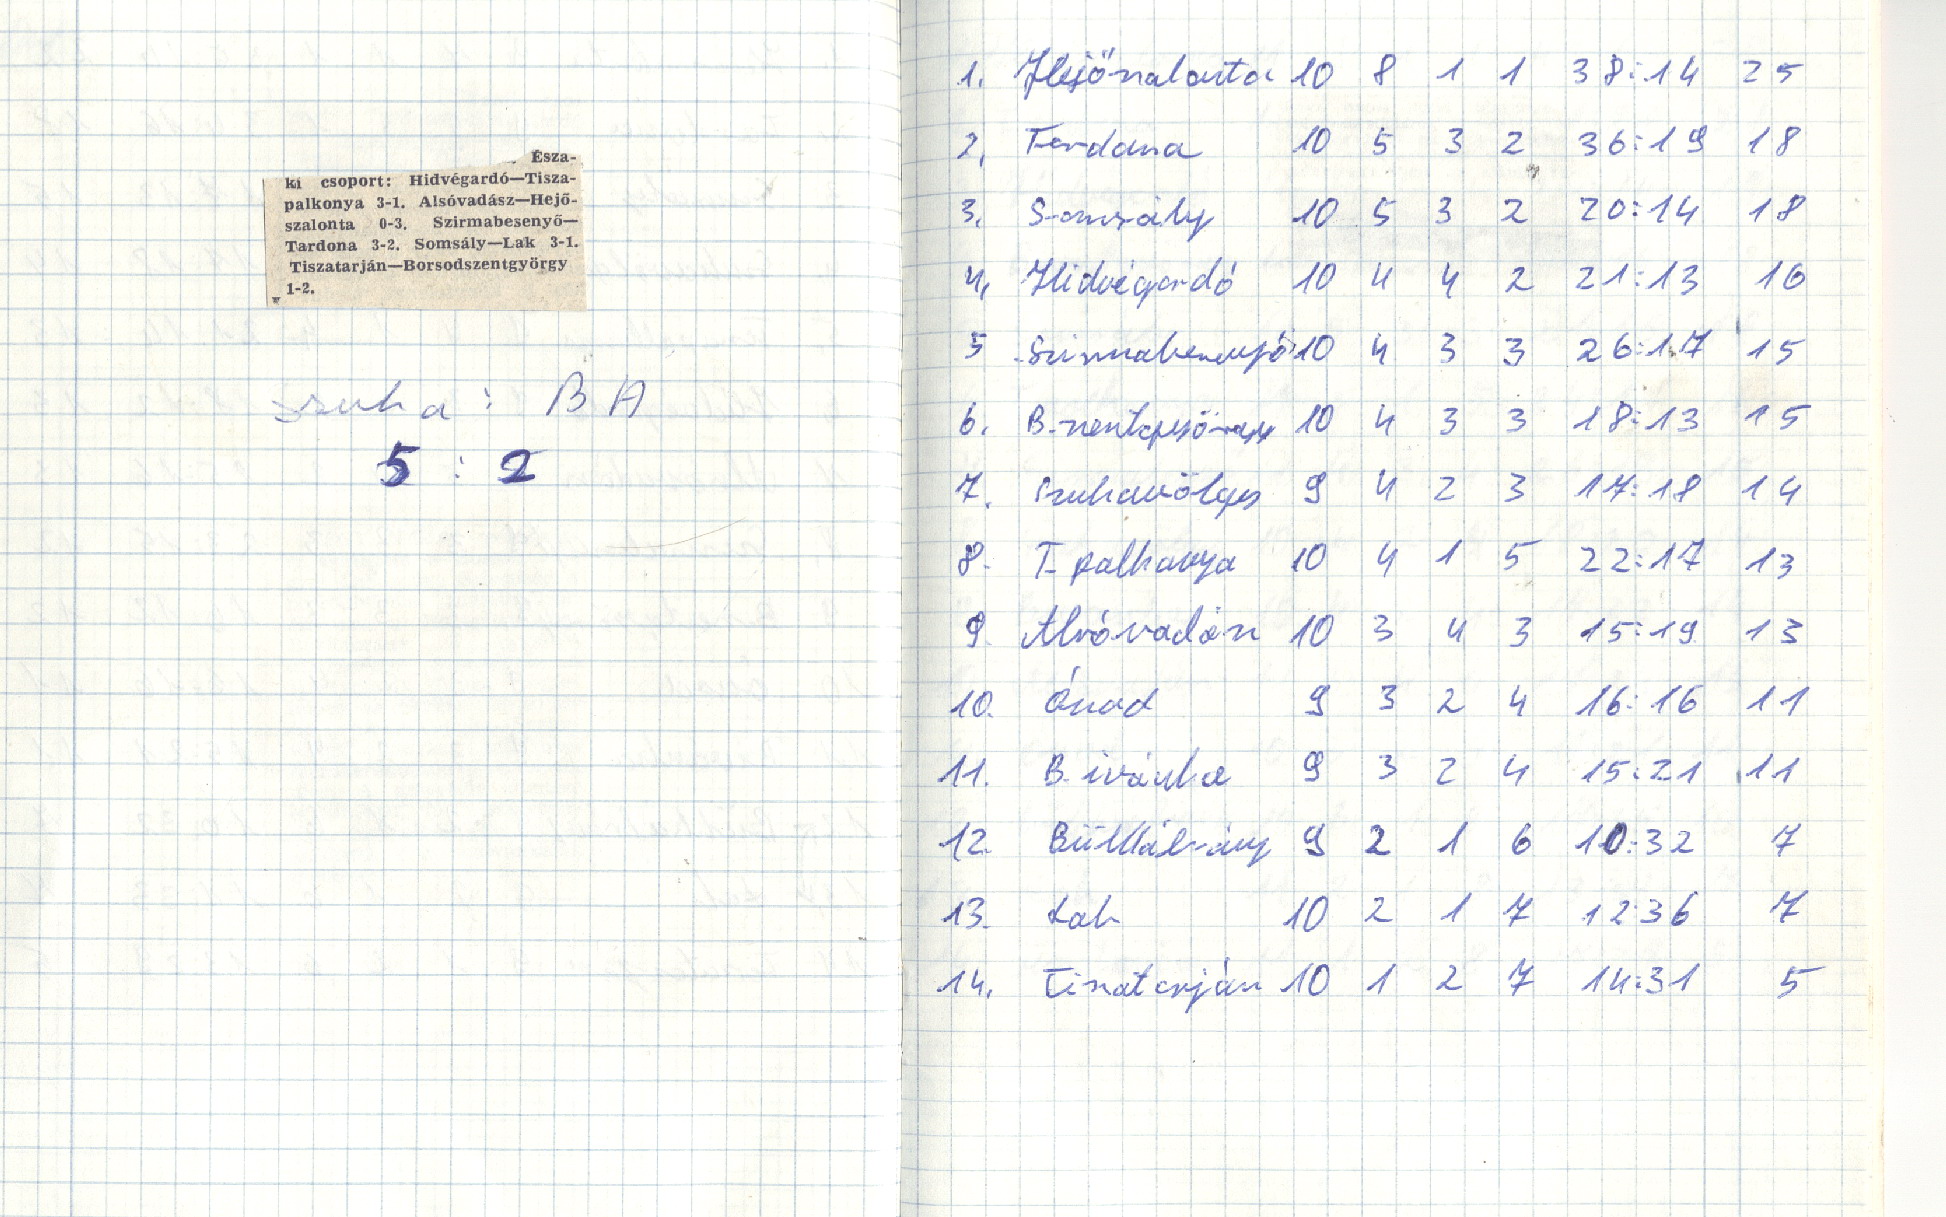 Észa-
ki csoport: Hidvégardó—Tisza-
palkonya 3-1. Alsóvadász—Hejő-
szalonta 0-3. Szirmabesenyő—
Tardona 3-2. Somsály—Lak 3-1.
Tiszatarján—Borsodszentgyörgy
1-2.
Szuha : BA
5 : 2
1. Hejőszalonta 10 8 1 1 38:14 25
2. Tardona 10 5 3 2 36:19 18
3. Somsály 10 5 3 2 20:14 18
4. Hidvégardó 10 4 4 2 21:13 16
5 Szirmabesenyő 10 4 3 3 26:17 15
6. B.szentgyörgy 10 4 3 3 18:13 15
7. Szuhavölgy 9 4 2 3 17:18 14
8. T.palkonya 10 4 1 5 22:17 13
9. Alsóvadász 10 3 4 3 15:19 13
10. Ónod 9 3 2 4 16:16 11
11. B.ivánka 9 3 2 4 15:21 11
12. Bükkábrány 9 2 1 6 10:32 7
13. Lak 10 2 1 7 12:36 7
14. Tiszatarján 10 1 2 7 14:31 5